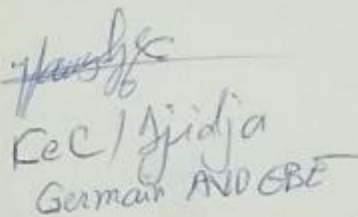 CeC/Djidja
Germain AVOGBE